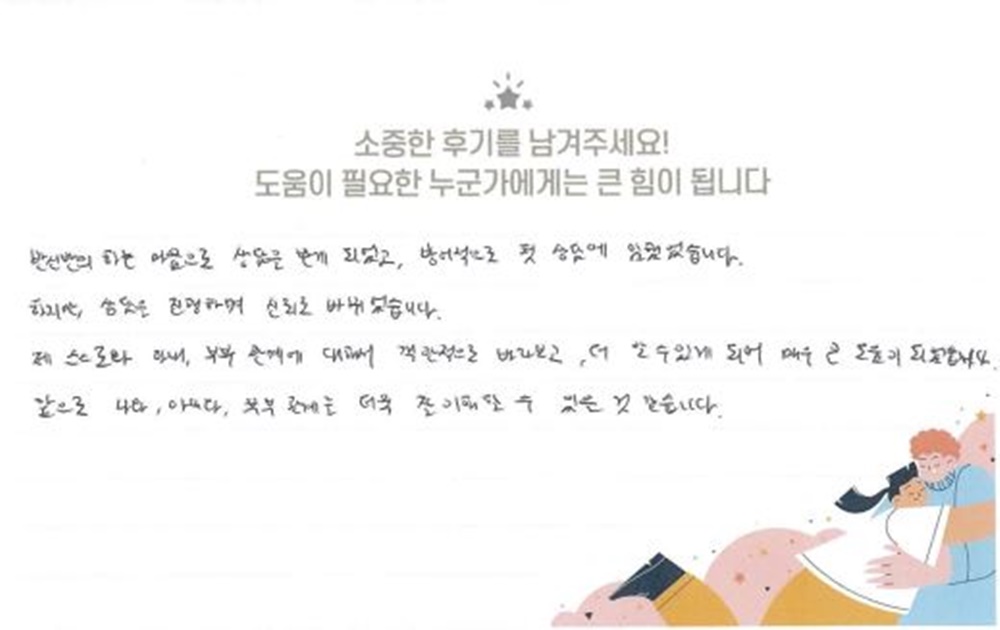 소중한 후기를 남겨주세요!
도움이 필요한 누군가에게는 큰 힘이 됩니다
반신반의 하는 마음으로 상담을 받게 되었고, 방어적으로 첫 상담에 임했었습니다.
하지만, 상담은 진행하며 신뢰로 바뀌었습니다.
제 스스로와 아내, 부부 관계에 대해서 객관적으로 바라보고, 더 알 수 있게 되어 매우 큰 도움이 되었습니다.
앞으로 나와, 아내와, 부부 관계는 더욱 잘 이해할 수 있을 것 같습니다.